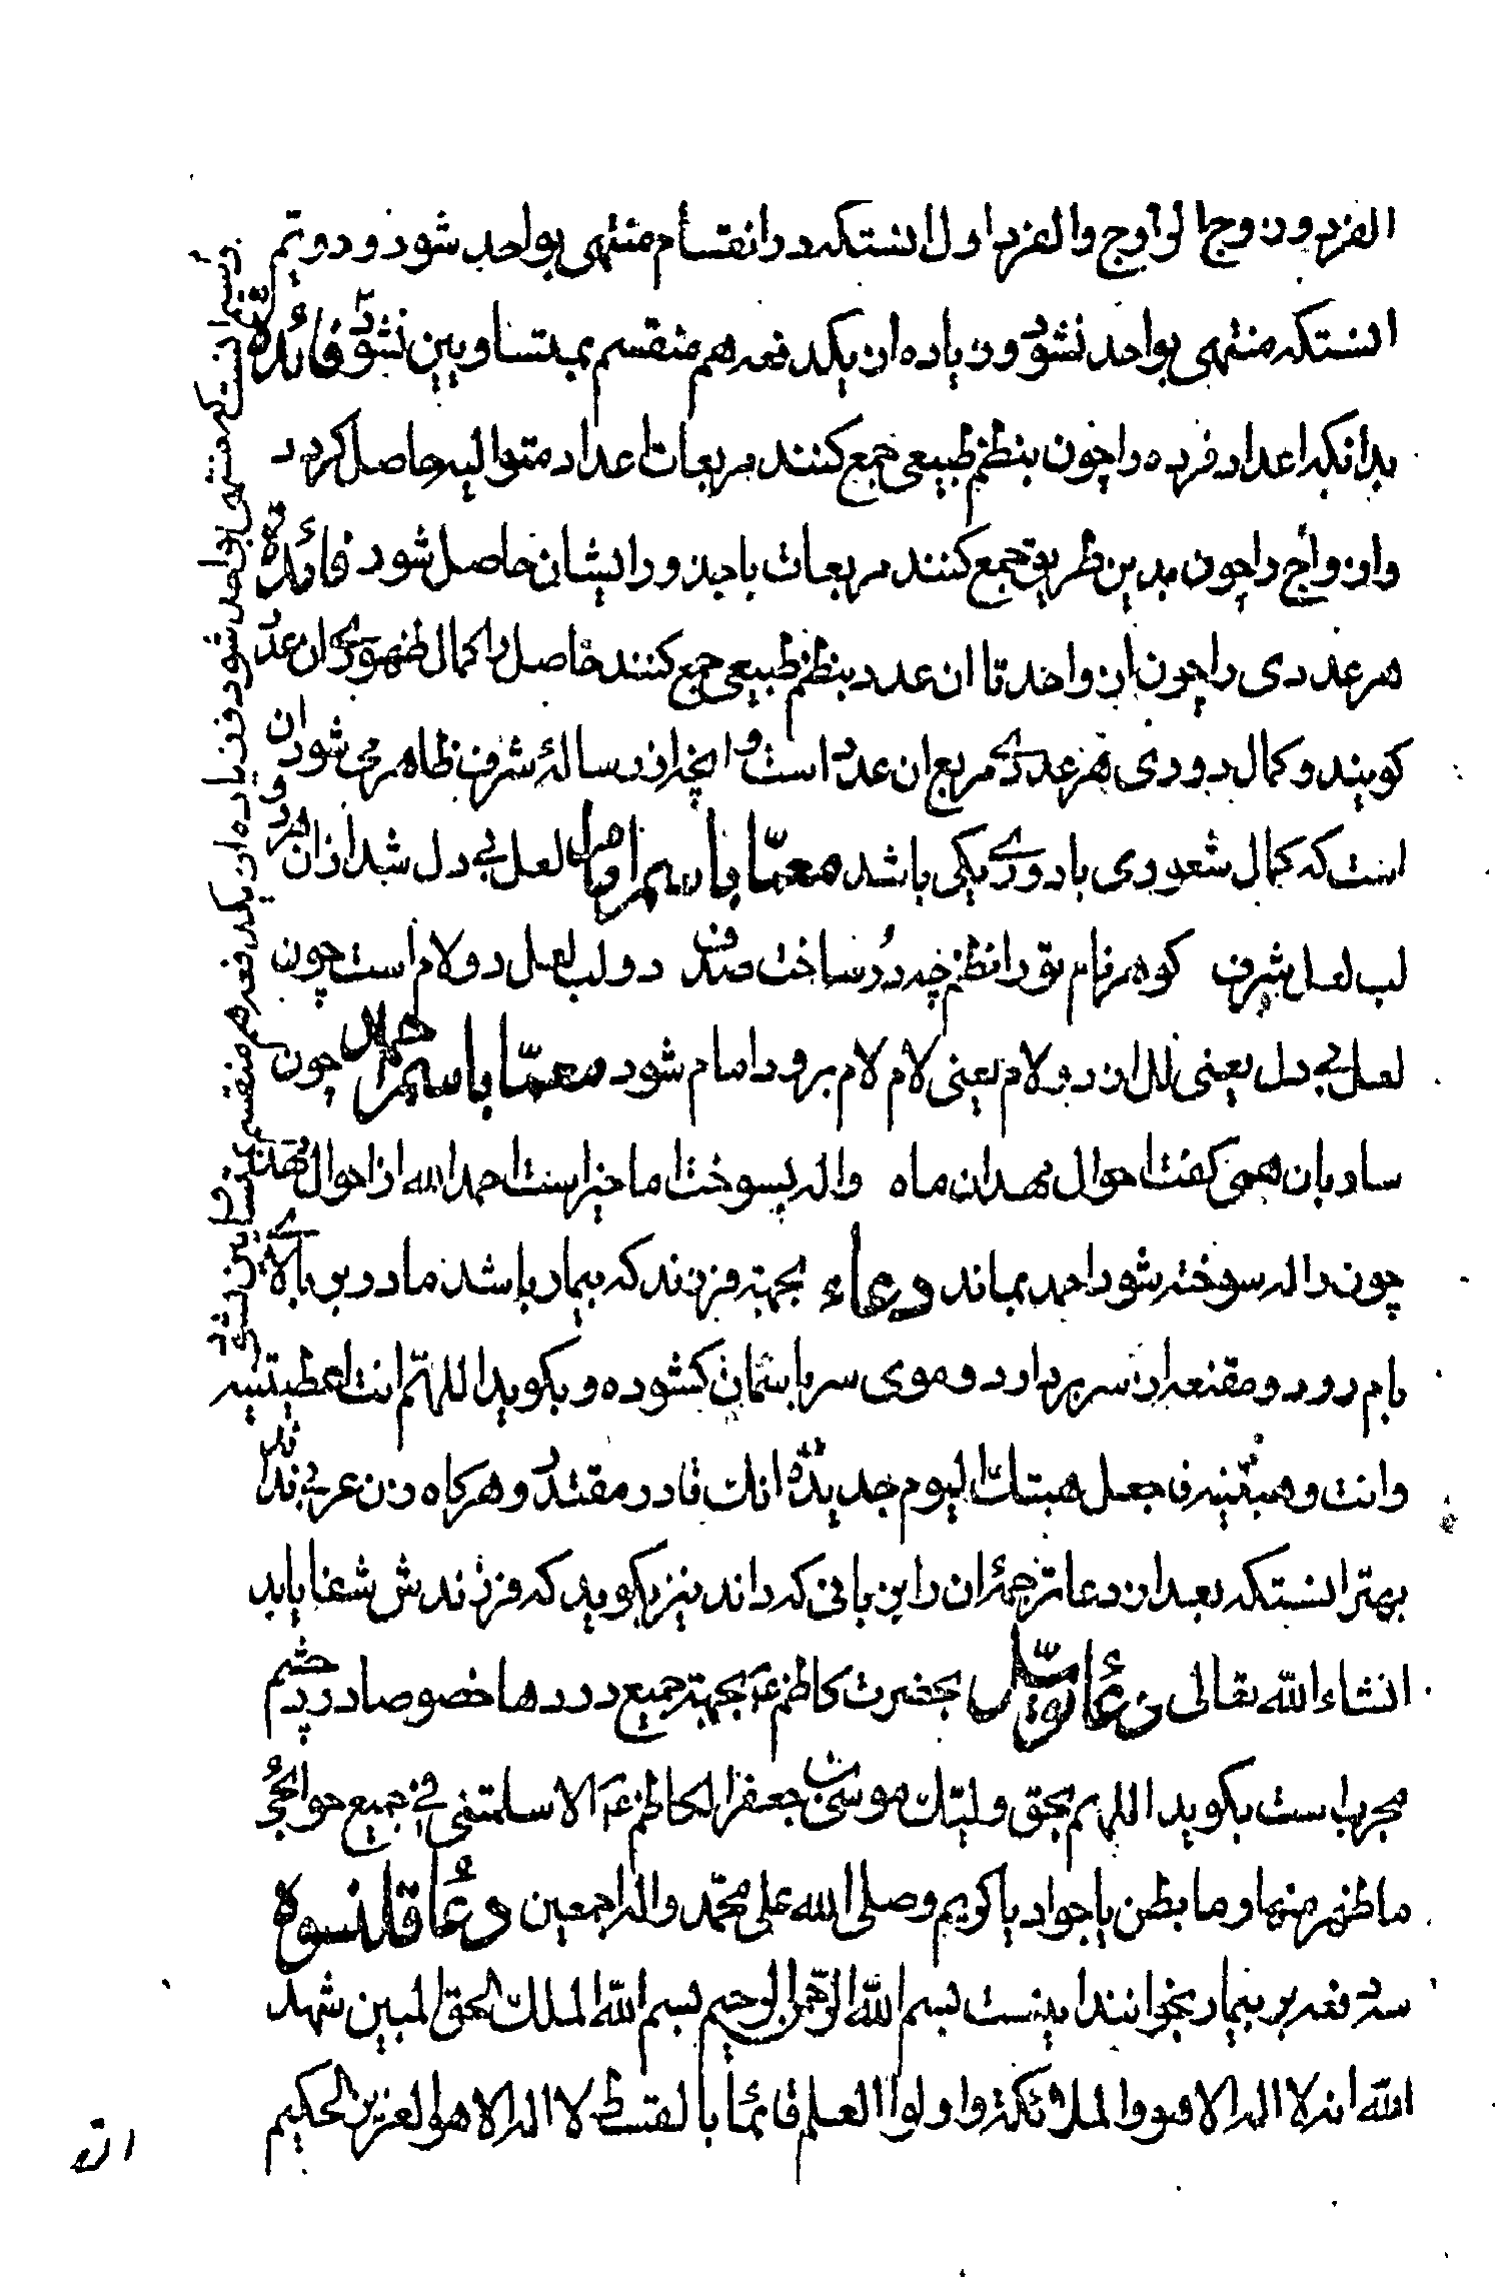 الفرد و زوج الزوج والفرد اول انستکه در انقسام منتهی بواحد شود و دویم
انستکه منتهی بواحد نشود و زیاده از یکدفعه هم منقسم بمتساویین نشود فائده
بدانکه اعداد فرده را چون بنظم طبیعی جمع کنند مربعات اعداد متوالیه حاصل کردد
و ازواج را چون بدین طریق جمع کنند مربعات با جذور ایشان حاصل شود فائده
هر عددی را چون از واحد تا ان عدد بنظم طبیعی جمع کنند حاصل را کمال ظهوری ان عدد
کویند و کمال دوری هر عددی مربع ان عدد است و انچه از رساله شرف ظاهر می شود ان
است که کمال شعوری با دوری یکی باشد معمّا باسم امام لعل بی دل شد از ان
لب لعل شرف کوهر نام تو را نظم چه در ساخت صدف دو لب لعل دو لام است چون
لعل بی دل یعنی لل از دو لام یعنی لام لام برود امام شود معمّا باسم احمد چون
ساربان همی کفت احوال مهد ان ماه واله بسوخت اما خیر است احمد الله از احوال مهد
چون واله سوخته شود احمد بماند دعاء بجهة فرزند که بیمار باشد مادر بر بالای
بام رود و مقنعه از سر بردارد و موی سر باسمان کشوده و بکوید اللهم انت اعطیتنیه
وانت وهبتنیه فاجعل هبتك الیوم جدیدة انك قادر مقتدر و هر کاه زن عربی نداند
بهتر انستکه بعد از دعا ترجمهٔ ان را بزبانی که داند نیز بکوید که فرزندش شفا یابد
انشاء الله تعالی دعا توسّل بحضرت کاظم ع بجهة جمیع دردها خصوصا درد چشم
مجرب است بکوید اللهم بحق ولیك موسی بن جعفر الکاظم ع الا سلمتنی فی جمیع جوارحی
ما ظهر منها و ما بطن یا جواد یا کریم و صلی الله علی محمّد واله اجمعین دعاء قلنسوه
سه دفعه بر بیمار بخوانند اینست بسم الله الرحمن الرحیم بسم الله الملك الحق المبین شهد
الله انه لا اله الا هو والملائکة واولوا العلم قائما بالقسط لا اله الا هو العزیز الحکیم
انستکه منتهی بواحد شود و زیاده از یکدفعه هم منقسم بمتساویین نشود